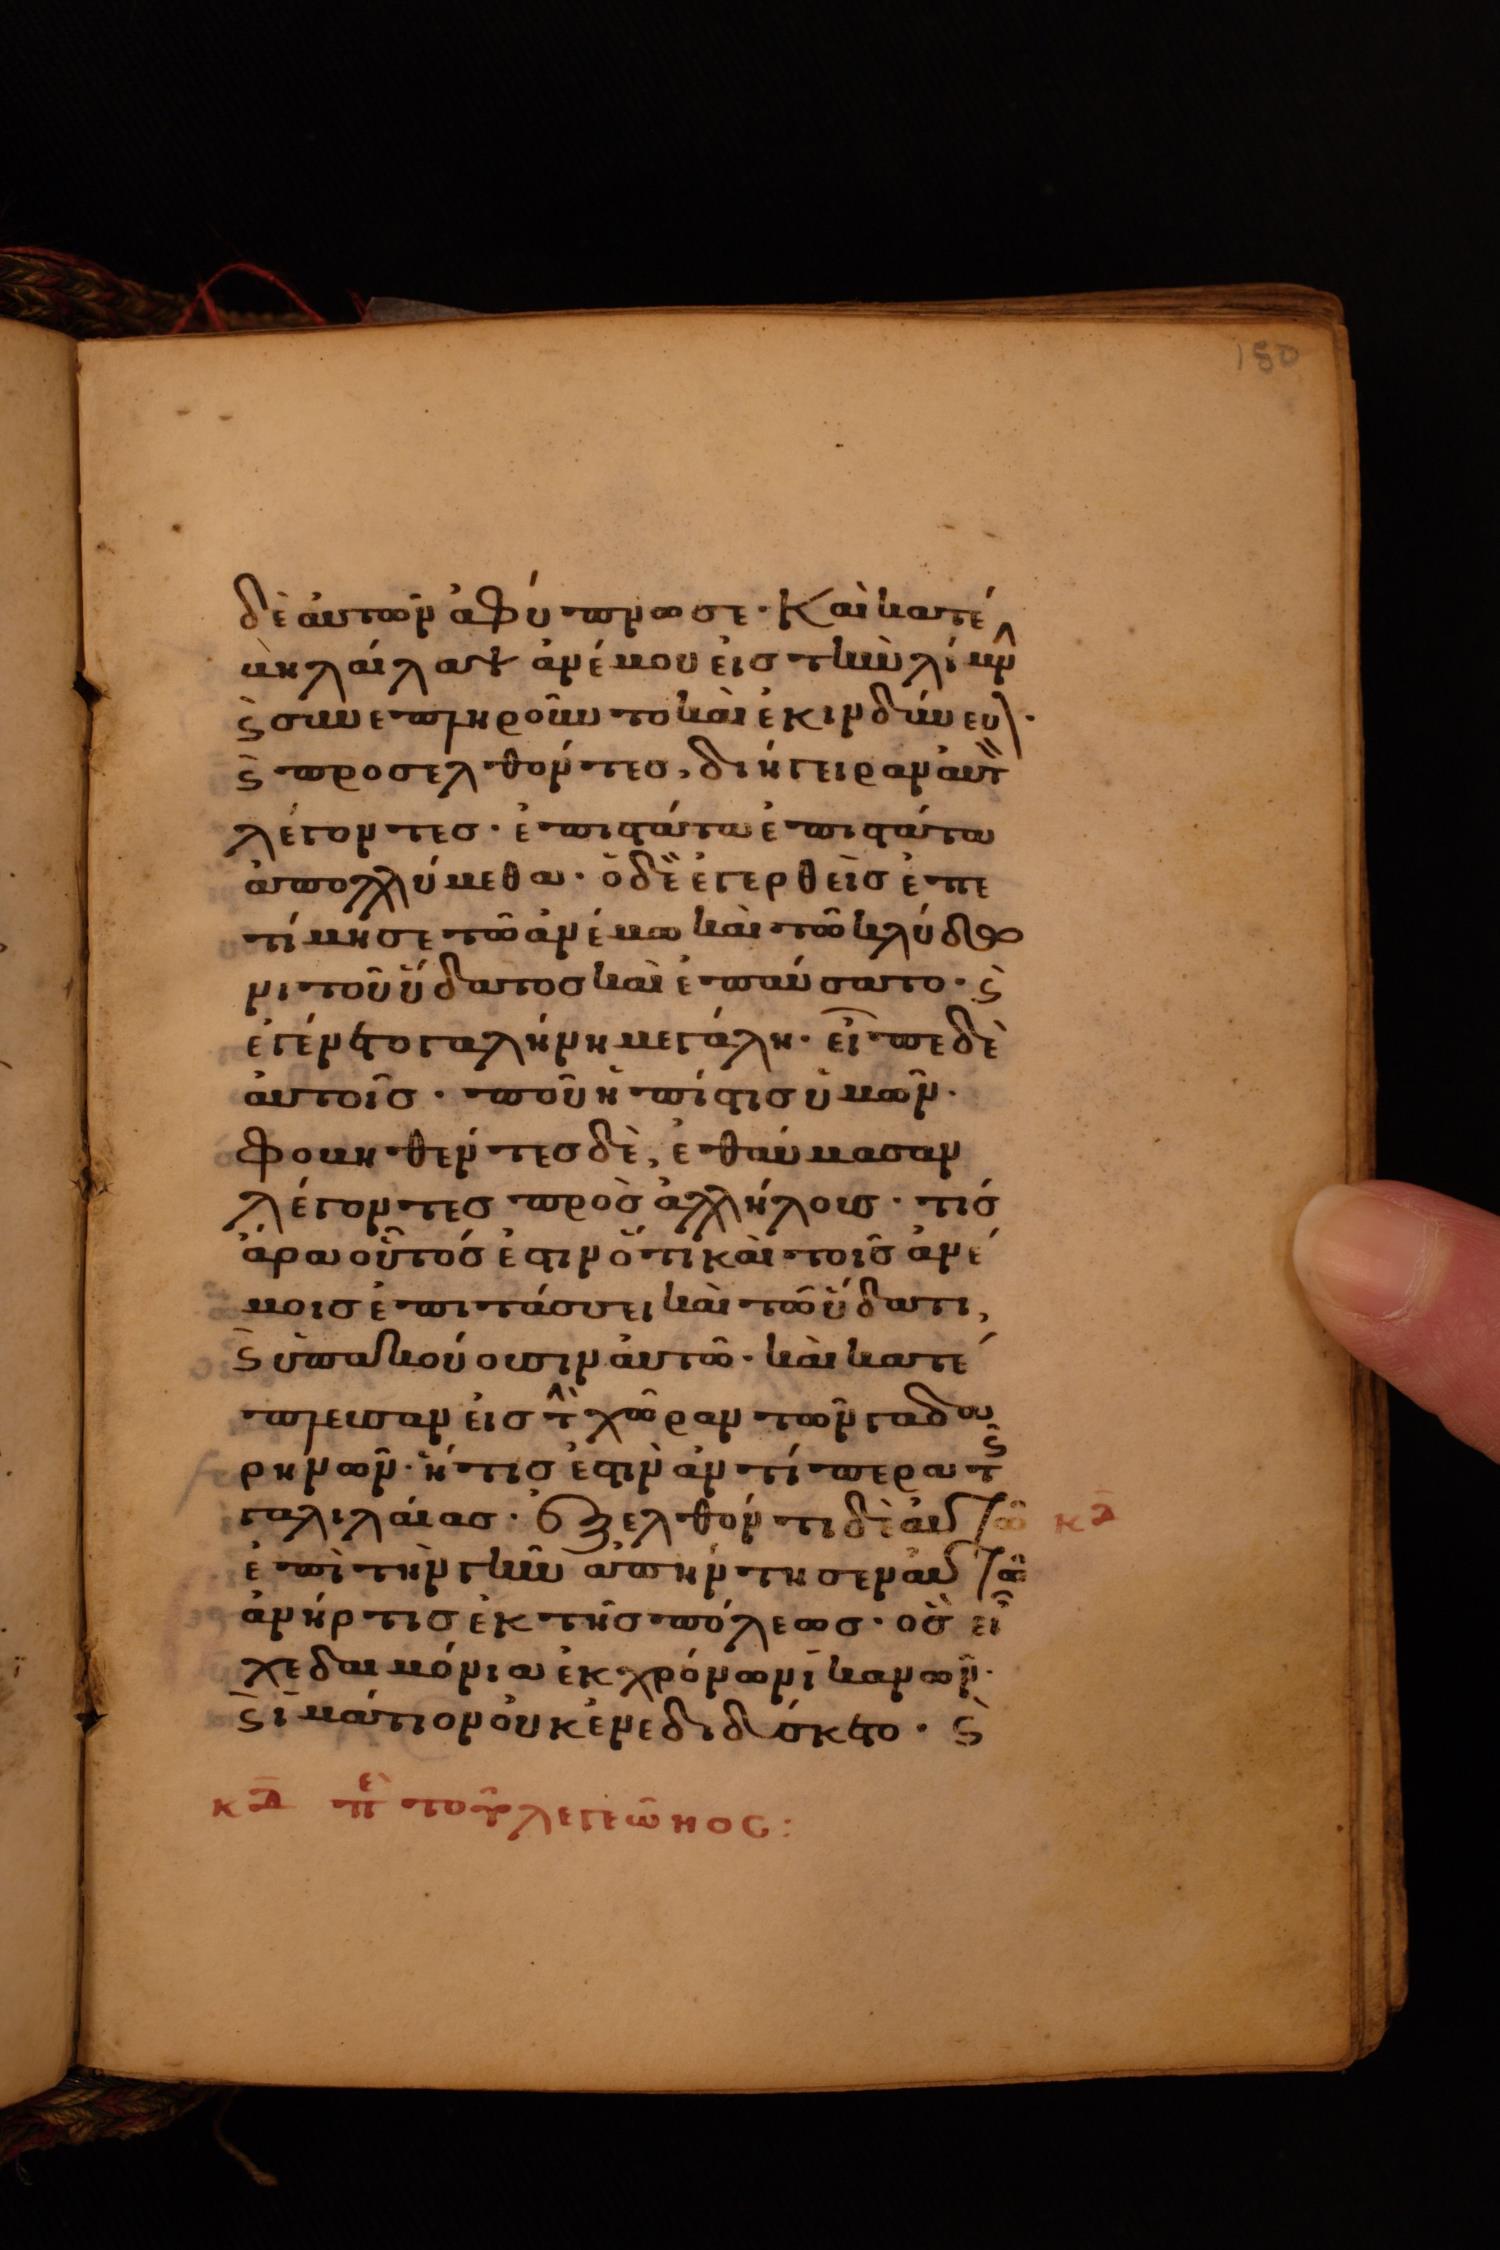 180
δὲ ἀυτῶν ἀφύπνωσε· Καὶ κατέ
βη λαίλαψ ἀνέμου εἰς τὴν λίμν
ϛ συνεπληροῦντο καὶ ἐκινδύνευ·
ϛ προσελθόντες, διήγειραν ἀυτ
λέγοντες· ἐπιστάτα ἐπιστάτα
ἀπολλύμεθα· ὁ δὲ ἐγερθεὶς ἐπε
τίμησε τῶ ἀνέμω καὶ τῶ κλύδω
νι τοῦ ὕδατος καὶ ἐπαύσατο· ϛ
ἐγένετο γαλήνη μεγάλη· εἶπε δὲ
ἀυτοῖς· ποῦ ἡ πίστις ὑμῶν·
φοβηθέντες δὲ, ἐθαύμασαν
λέγοντες πρὸς ἀλλήλους· τίς
ἄρα οὗτός ἐστιν ὅτι καὶ τοῖς ἀνέ
μοις ἐπιτάσσει καὶ τῶ ὕδατι,
ϛ ὑπακούουσιν ἀυτῶ· καὶ κατέ
πλευσαν εἰς τὴν χώραν τῶν γαδα
ρηνῶν· ἥτις ἐστὶν ἀντίπερα τῆς
γαλιλαίας· Ἐξελθόντι δὲ ἀυτῶ κδ
ἐπὶ τὴν γῆν ἀπήντησεν ἀυτῶ
ἀνήρ τις ἐκ τῆς πόλεως· ὃς εἶ
χε δαιμόνια ἐκ χρόνων ἱκανῶν·
ϛ ἱμάτιον οὐκ ἐνεδιδύσκετο· ϛ
κδ πε τοῦ λεγεῶνος: